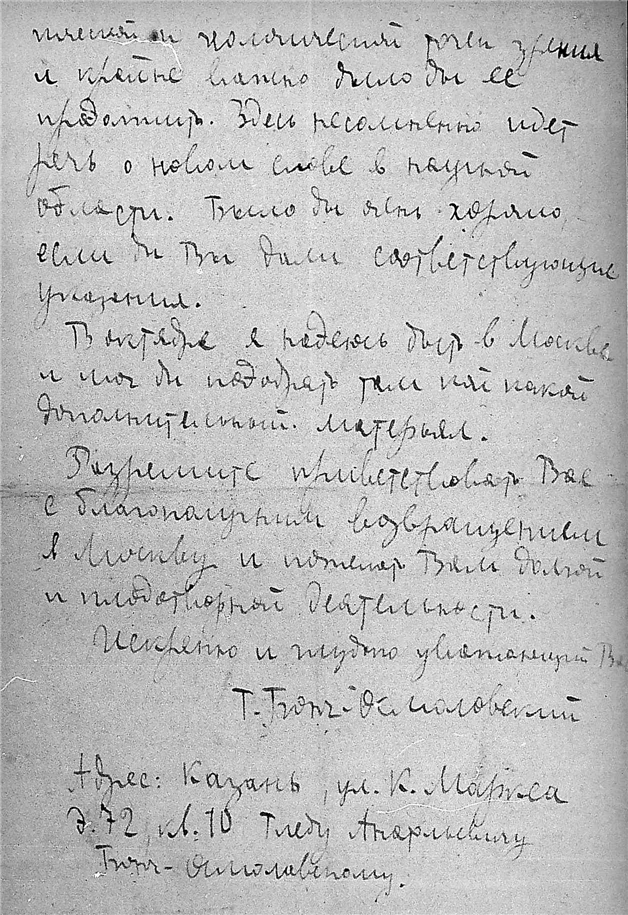 и крайне важно было бы ее
продолжить. Здесь несомненно идет
речь о новом слове в научной
области. Было бы очень хорошо,
если бы Вы дали соответствующие
указания.
В октябре я надеюсь быть в Москве
и мог бы подобрать там кой какой
дополнительный матерьял.
Разрешите приветствовать Вас
с благополучным возвращением
в Москву и пожелать Вам долгой
и плодотворной деятельности.
Искренно и глубоко уважающий Вас
Г. Бонч-Осмоловский
Адрес: Казань, ул. К. Маркса
д. 72, кв. 10 Глебу Анатольевичу
Бонч-Осмоловскому.